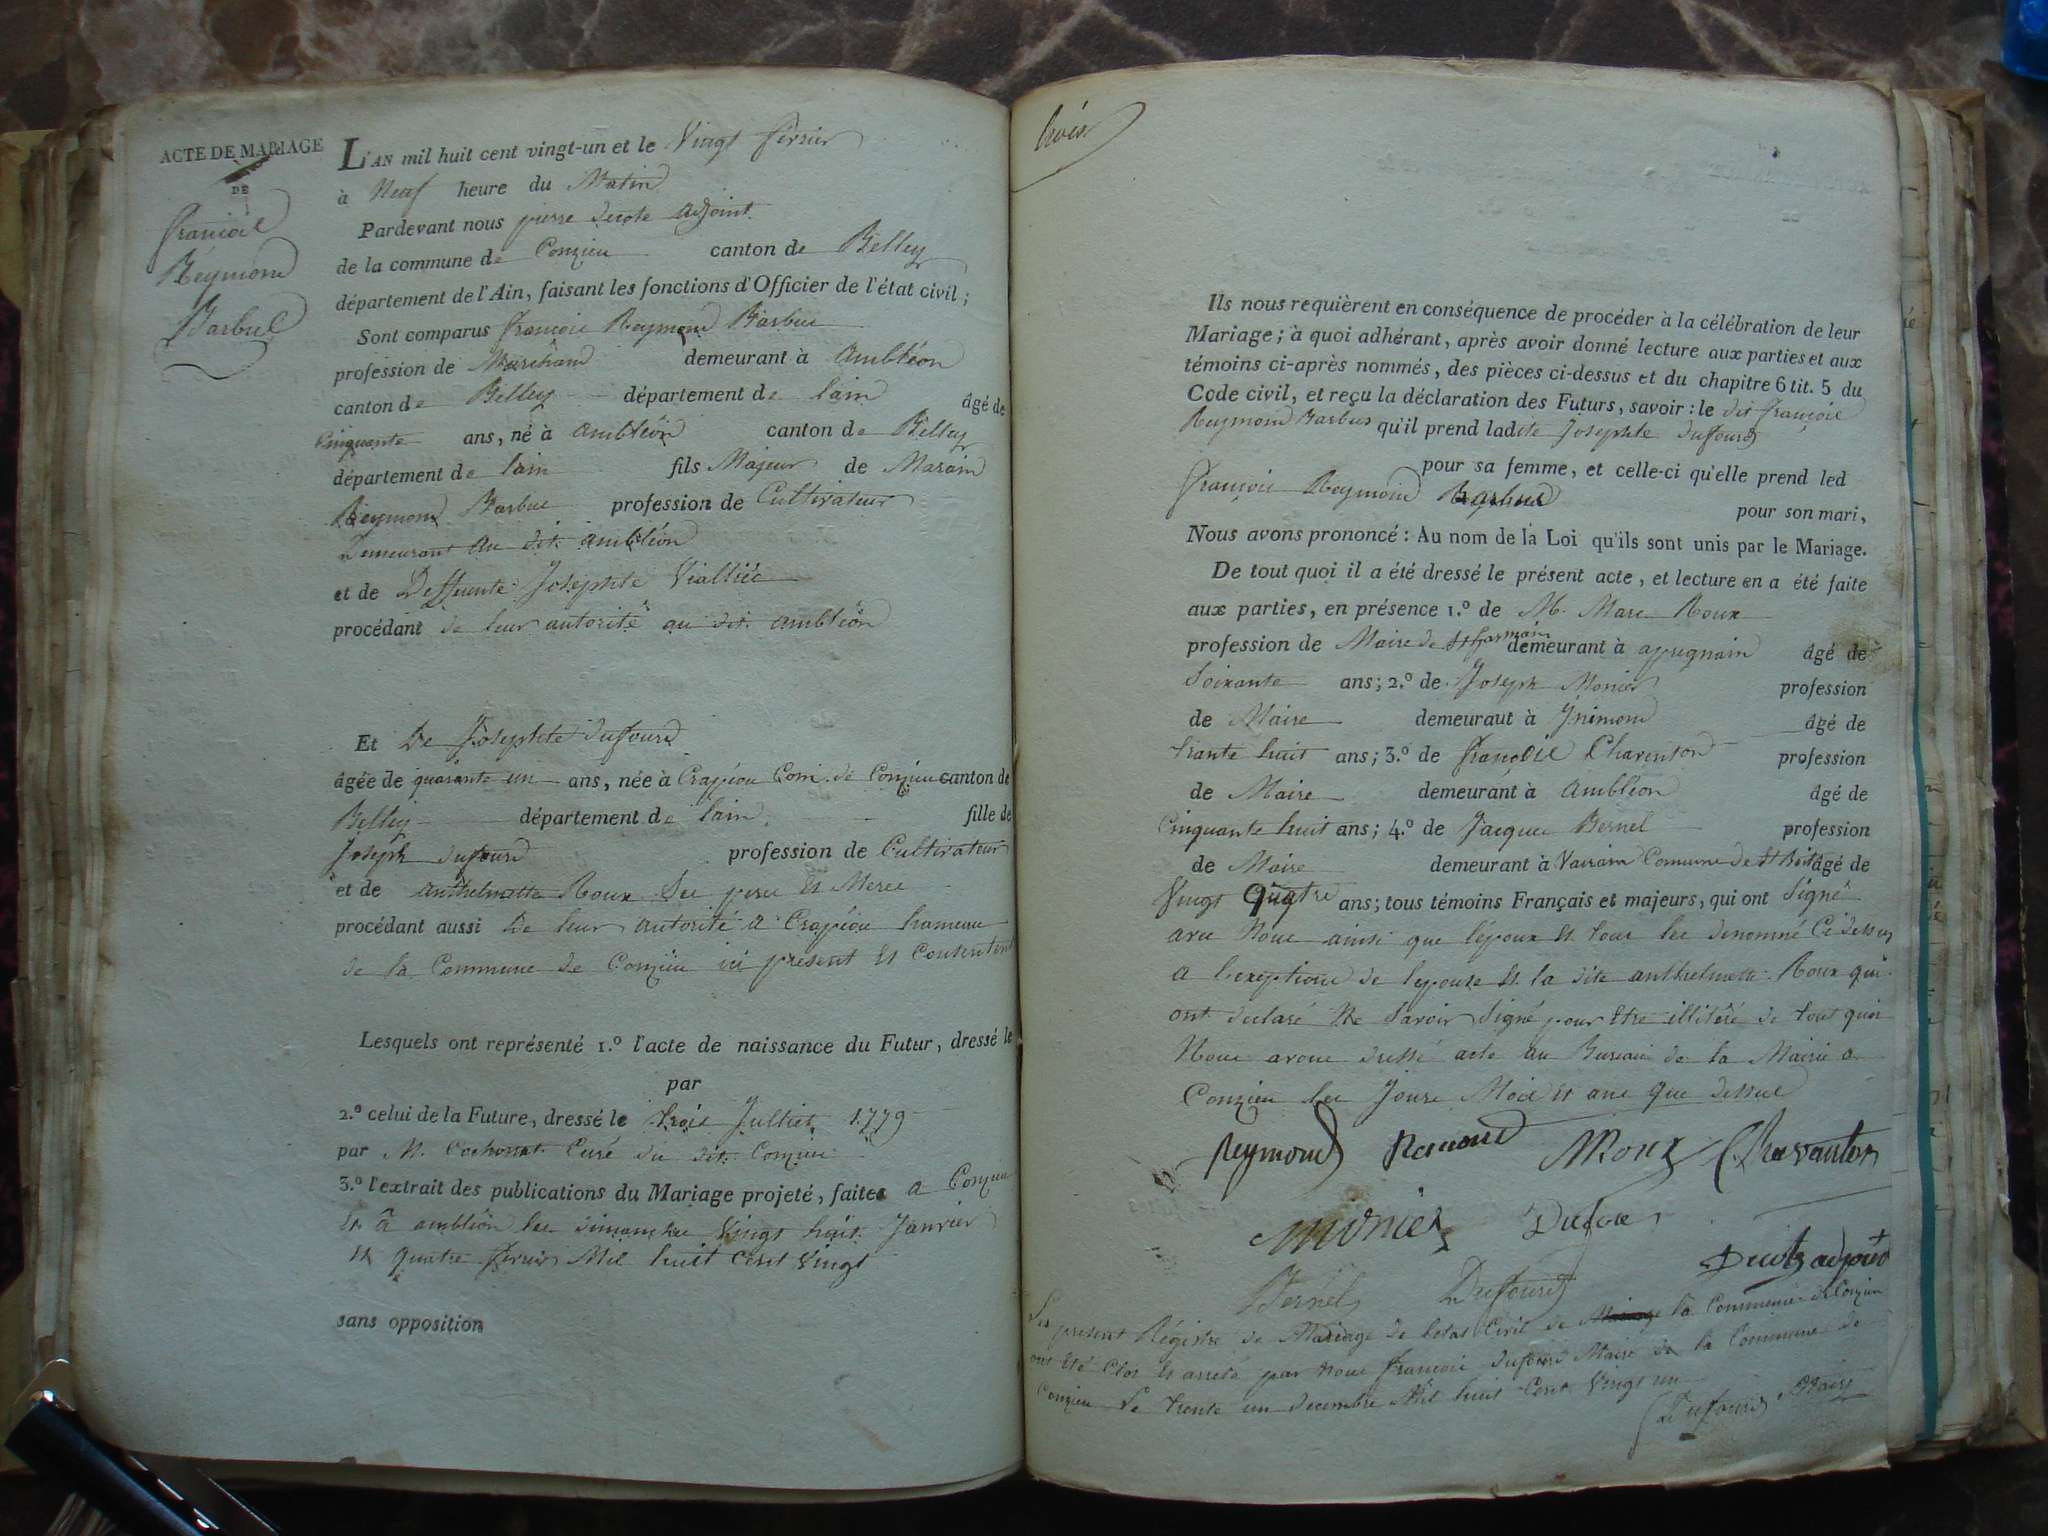 ACTE DE MARIAGE
DE
françoie
Reymond
Barbue
L'AN mil huit cent vingt-un et le Vingt ferrier
à Neuf heure du Matin
Pardevant nous pierre decote adjoint
de la commune de Conzieu canton de Belley
département de l'Ain, faisant les fonctions d'Officier de l'état civil ;
Sont comparus françoie Reymond Barbue
profession de Marchand demeurant à ambléon
canton de Belley département de lain âgé de
Cinquante ans, né à ambléon canton de Belley
département de lain fils Majeur de Marain
Reymond Barbue profession de Cultivateur
Demeurant au dit ambléon
et de Deffuente Josephte Vialliéc
procédant de leur autorité au dit ambléon
Et De Josephte dufourd
âgée de quarante un ans, née à Crapéou Com. de Conzieu canton de
Belley département de lain. fille de
Joseph dufourd profession de Cultivateur
et de anthelmette Roux See pere et Meree
procédant aussi De leur autorité a Crapéou hameau
de la Commune de Conzieu ici present et Consentent
Lesquels ont représenté 1.° l'acte de naissance du Futur, dressé le
par
2.° celui de la Future, dressé le trois Julliet 1779
par M. Cochonat Curé du dit Conzieu
3.° l'extrait des publications du Mariage projeté, faites a Conzieu
et â ambléon lee dimanchee Vingt huit Janvier
et quatre ferrier Mil huit cent Vingt
sans opposition
trois
Ils nous requièrent en conséquence de procéder à la célébration de leur
Mariage ; à quoi adhérant, après avoir donné lecture aux parties et aux
témoins ci-après nommés, des pièces ci-dessus et du chapitre 6 tit. 5 du
Code civil, et reçu la déclaration des Futurs, savoir : le dit françoie
Reymond Barbue qu'il prend ladite Josephte dufourd
pour sa femme, et celle-ci qu'elle prend led
françoie Reymond Barbue
pour son mari,
Nous avons prononcé : Au nom de la Loi qu'ils sont unis par le Mariage.
De tout quoi il a été dressé le présent acte, et lecture en a été faite
aux parties, en présence 1.° de M. Marc Roux
profession de Maire de St germain demeurant à apregnain âgé de
Soixante ans ; 2.° de Joseph Monier profession
de Maire demeuraut à Jnimond âgé de
trante huit ans ; 3.° de françoie Charenton profession
de Maire demeurant à ambléon âgé de
Cinquante huit ans ; 4.° de Jacque Bernel profession
de Maire demeurant à Vairain Comune de St Boit âgé de
Vingt quatre ans ; tous témoins Français et majeurs, qui ont Signé
avec Noue ainsi que lépoux et toue lee denomné Ci dessue
a lexeptione de lepouse et la dite anthelmette Roux qui
ont declaré Ne Savoir Signé pour Etre illitéré de tout quoi
Noue avone dressé acte au Bureau de la Mairie a
Conzieu lee Joure Moie et ane que dessue
Reymond Mroux Charanton
monier Dufour
Bernel Dufourd Decote adjoint
Le present Régistre de Mariage de letat Civil de la Commune de Conzieu
ont été Clos et arreté par noue françoie dufourd Maire de la Commune de
Conzieu Le trente un decembre Mil huit Cent Vingt un
Dufourd Maire